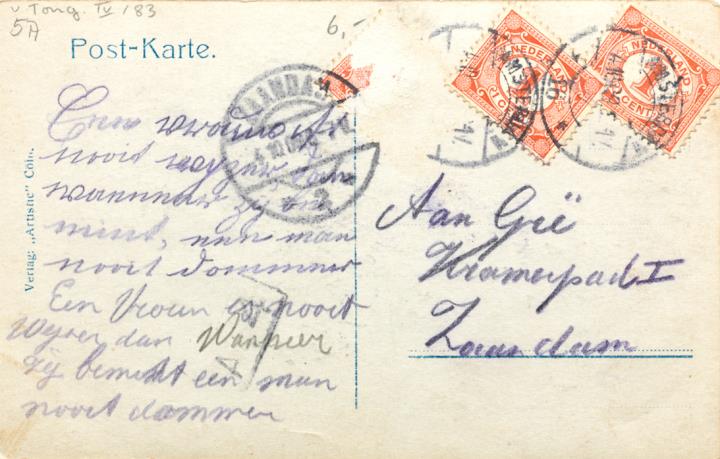 v Tong. IV /83
5A
6,-
Post-Karte.
Verlag: „Artistic" Cöln.
NEDERLAND
1 CENT
NEDERLAND
1 CENT
AMSTERDAM
ZAANDAM
Een vrouw is
nooit wyzer, dan
wanneer zy
mint, een man
nooit dommer
Een Vrouw is nooit
Wyzer dan Wanneer
Zy bemint een man
nooit dommer
Aan Gré
Kramerpad I
Zaandam